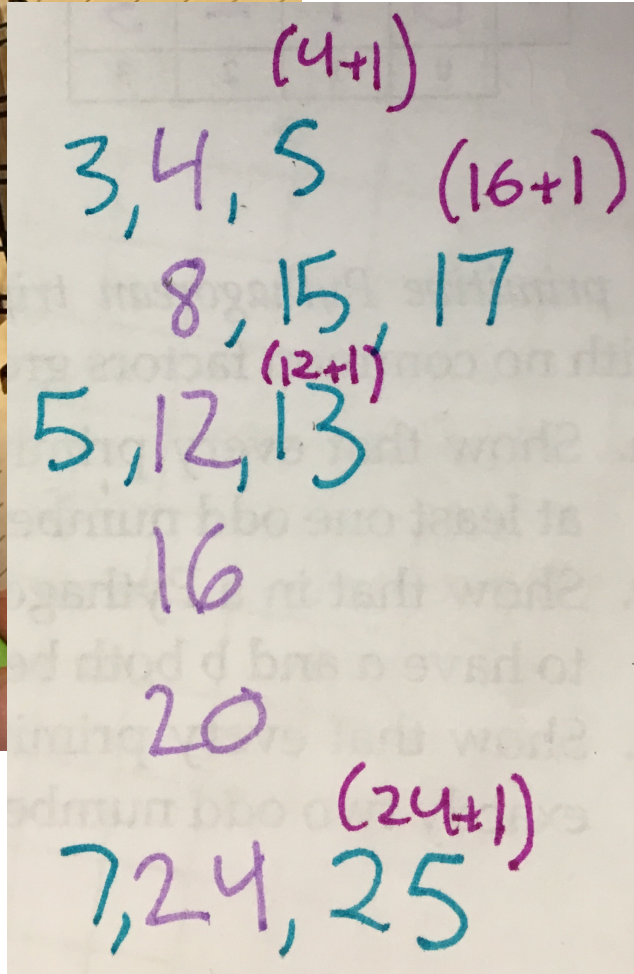 (4+1)
3, 4, 5
(16+1)
8, 15, 17
(12+1)
5, 12, 13
16
20
(24+1)
7, 24, 25